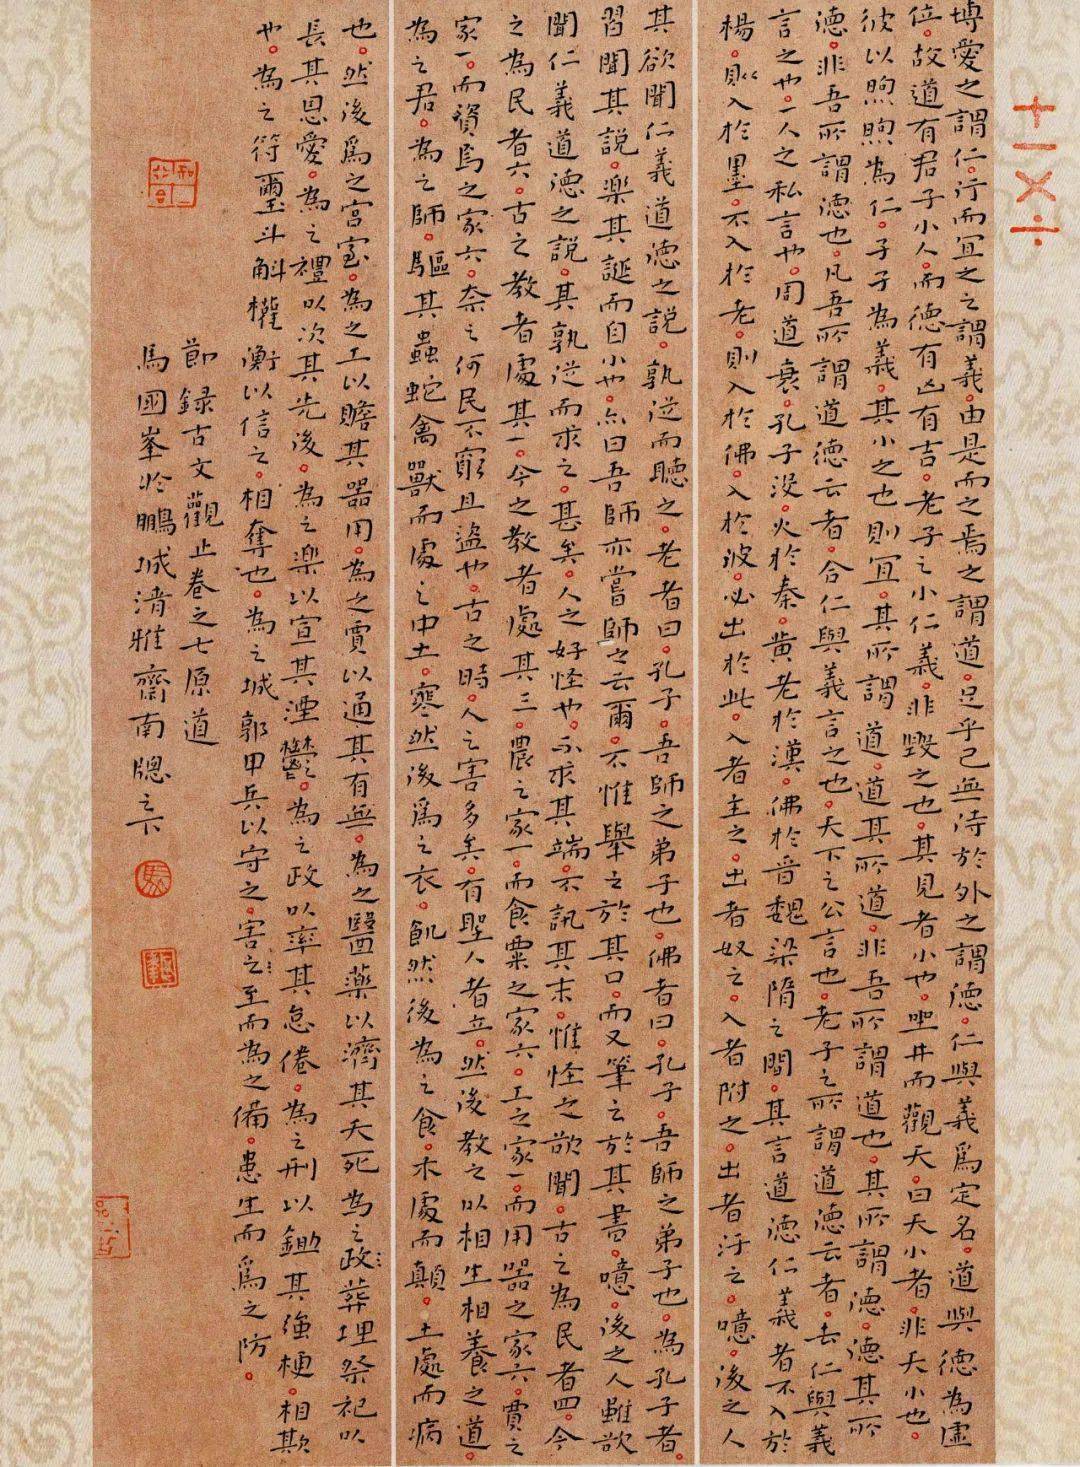 博愛之謂仁。行而宜之之謂義。由是而之焉之謂道。足乎己無待於外之謂德。仁與義爲定名。道與德為虛
位。故道有君子小人。而德有凶有吉。老子之小仁義。非毀之也。其見者小也。坐井而觀天。曰天小者。非天小也。
彼以煦煦為仁。孑孑為義。其小之也則宜。其所謂道。道其所道。非吾所謂道也。其所謂德。德其所
德。非吾所謂德也。凡吾所謂道德云者。合仁與義言之也。天下之公言也。老子之所謂道德云者。去仁與義
言之也。一人之私言也。周道衰。孔子沒。火於秦。黃老於漢。佛於晉魏梁隋之間。其言道德仁義者。不入於
楊。則入於墨。不入於老。則入於佛。入於彼。必出於此。入者主之。出者奴之。入者附之。出者汙之。噫。後之人
其欲聞仁義道德之說。孰從而聽之。老者曰。孔子。吾師之弟子也。佛者曰。孔子。吾師之弟子也。為孔子者。
習聞其說。樂其誕而自小也。亦曰吾師亦嘗師之云爾。不惟舉之於其口。而又筆之於其書。噫。後之人雖欲
聞仁義道德之說。其孰從而求之。甚矣。人之好怪也。不求其端。不訊其末。惟怪之欲聞。古之為民者四。今
之為民者六。古之教者處其一。今之教者處其三。農之家一。而食粟之家六。工之家一。而用器之家六。賈之
家一。而資焉之家六。奈之何民不窮且盜也。古之時。人之害多矣。有聖人者立。然後教之以相生相養之道。
為之君。為之師。驅其蟲蛇禽獸而處之中土。寒然後爲之衣。飢然後為之食。木處而顛。土處而病
也。然後爲之宮室。為之工以贍其器用。為之賈以通其有無。為之醫藥以濟其夭死。為之政葬埋祭祀以
長其恩愛。為之禮以次其先後。為之樂以宣其湮鬱。為之政以率其怠倦。為之刑以鋤其強梗。相欺
也。為之符璽斗斛權衡以信之。相奪也。為之城郭甲兵以守之。害至而為之備。患生而爲之防。
節録古文觀止卷之七原道
馬國峯於鵬城清雅齋南窗之下